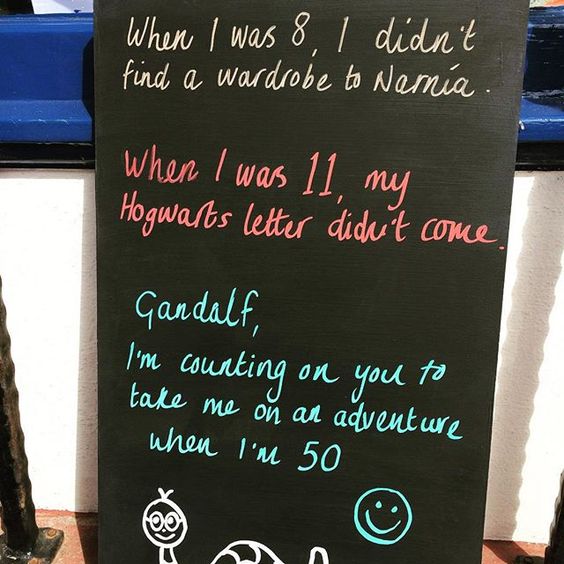 When I was 8, I didn't
find a wardrobe to Narnia.
When I was 11, my
Hogwarts letter didn't come.
Gandalf,
I'm counting on you to
take me on an adventure
when I'm 50